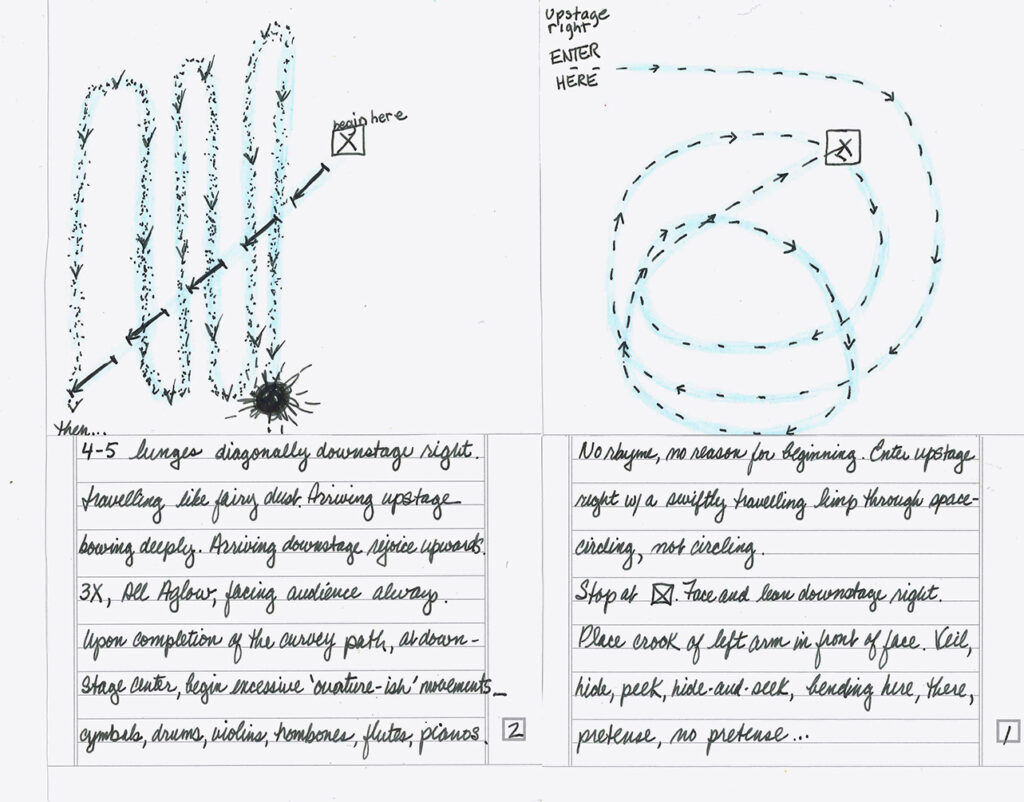 begin here
X
then...
4-5 lunges diagonally downstage right.
travelling like fairy dust. Arriving upstage
bowing deeply. Arriving downstage rejoice upwards.
3X, All Aglow, facing audience always.
Upon completion of the curvey path, at down-
stage center, begin excessive 'overture-ish' movements_
cymbals, drums, violins, trombones, flutes, pianos.
2
upstage
right
ENTER
HERE
X
No rhyme, no reason for beginning. Enter upstage
right w/ a swiftly travelling limp through space-
circling, not circling.
Stop at X. Face and lean downstage right.
Place crook of left arm in front of face. Veil,
hide, peek, hide-and-seek, bending here, there,
pretense, no pretense...
1